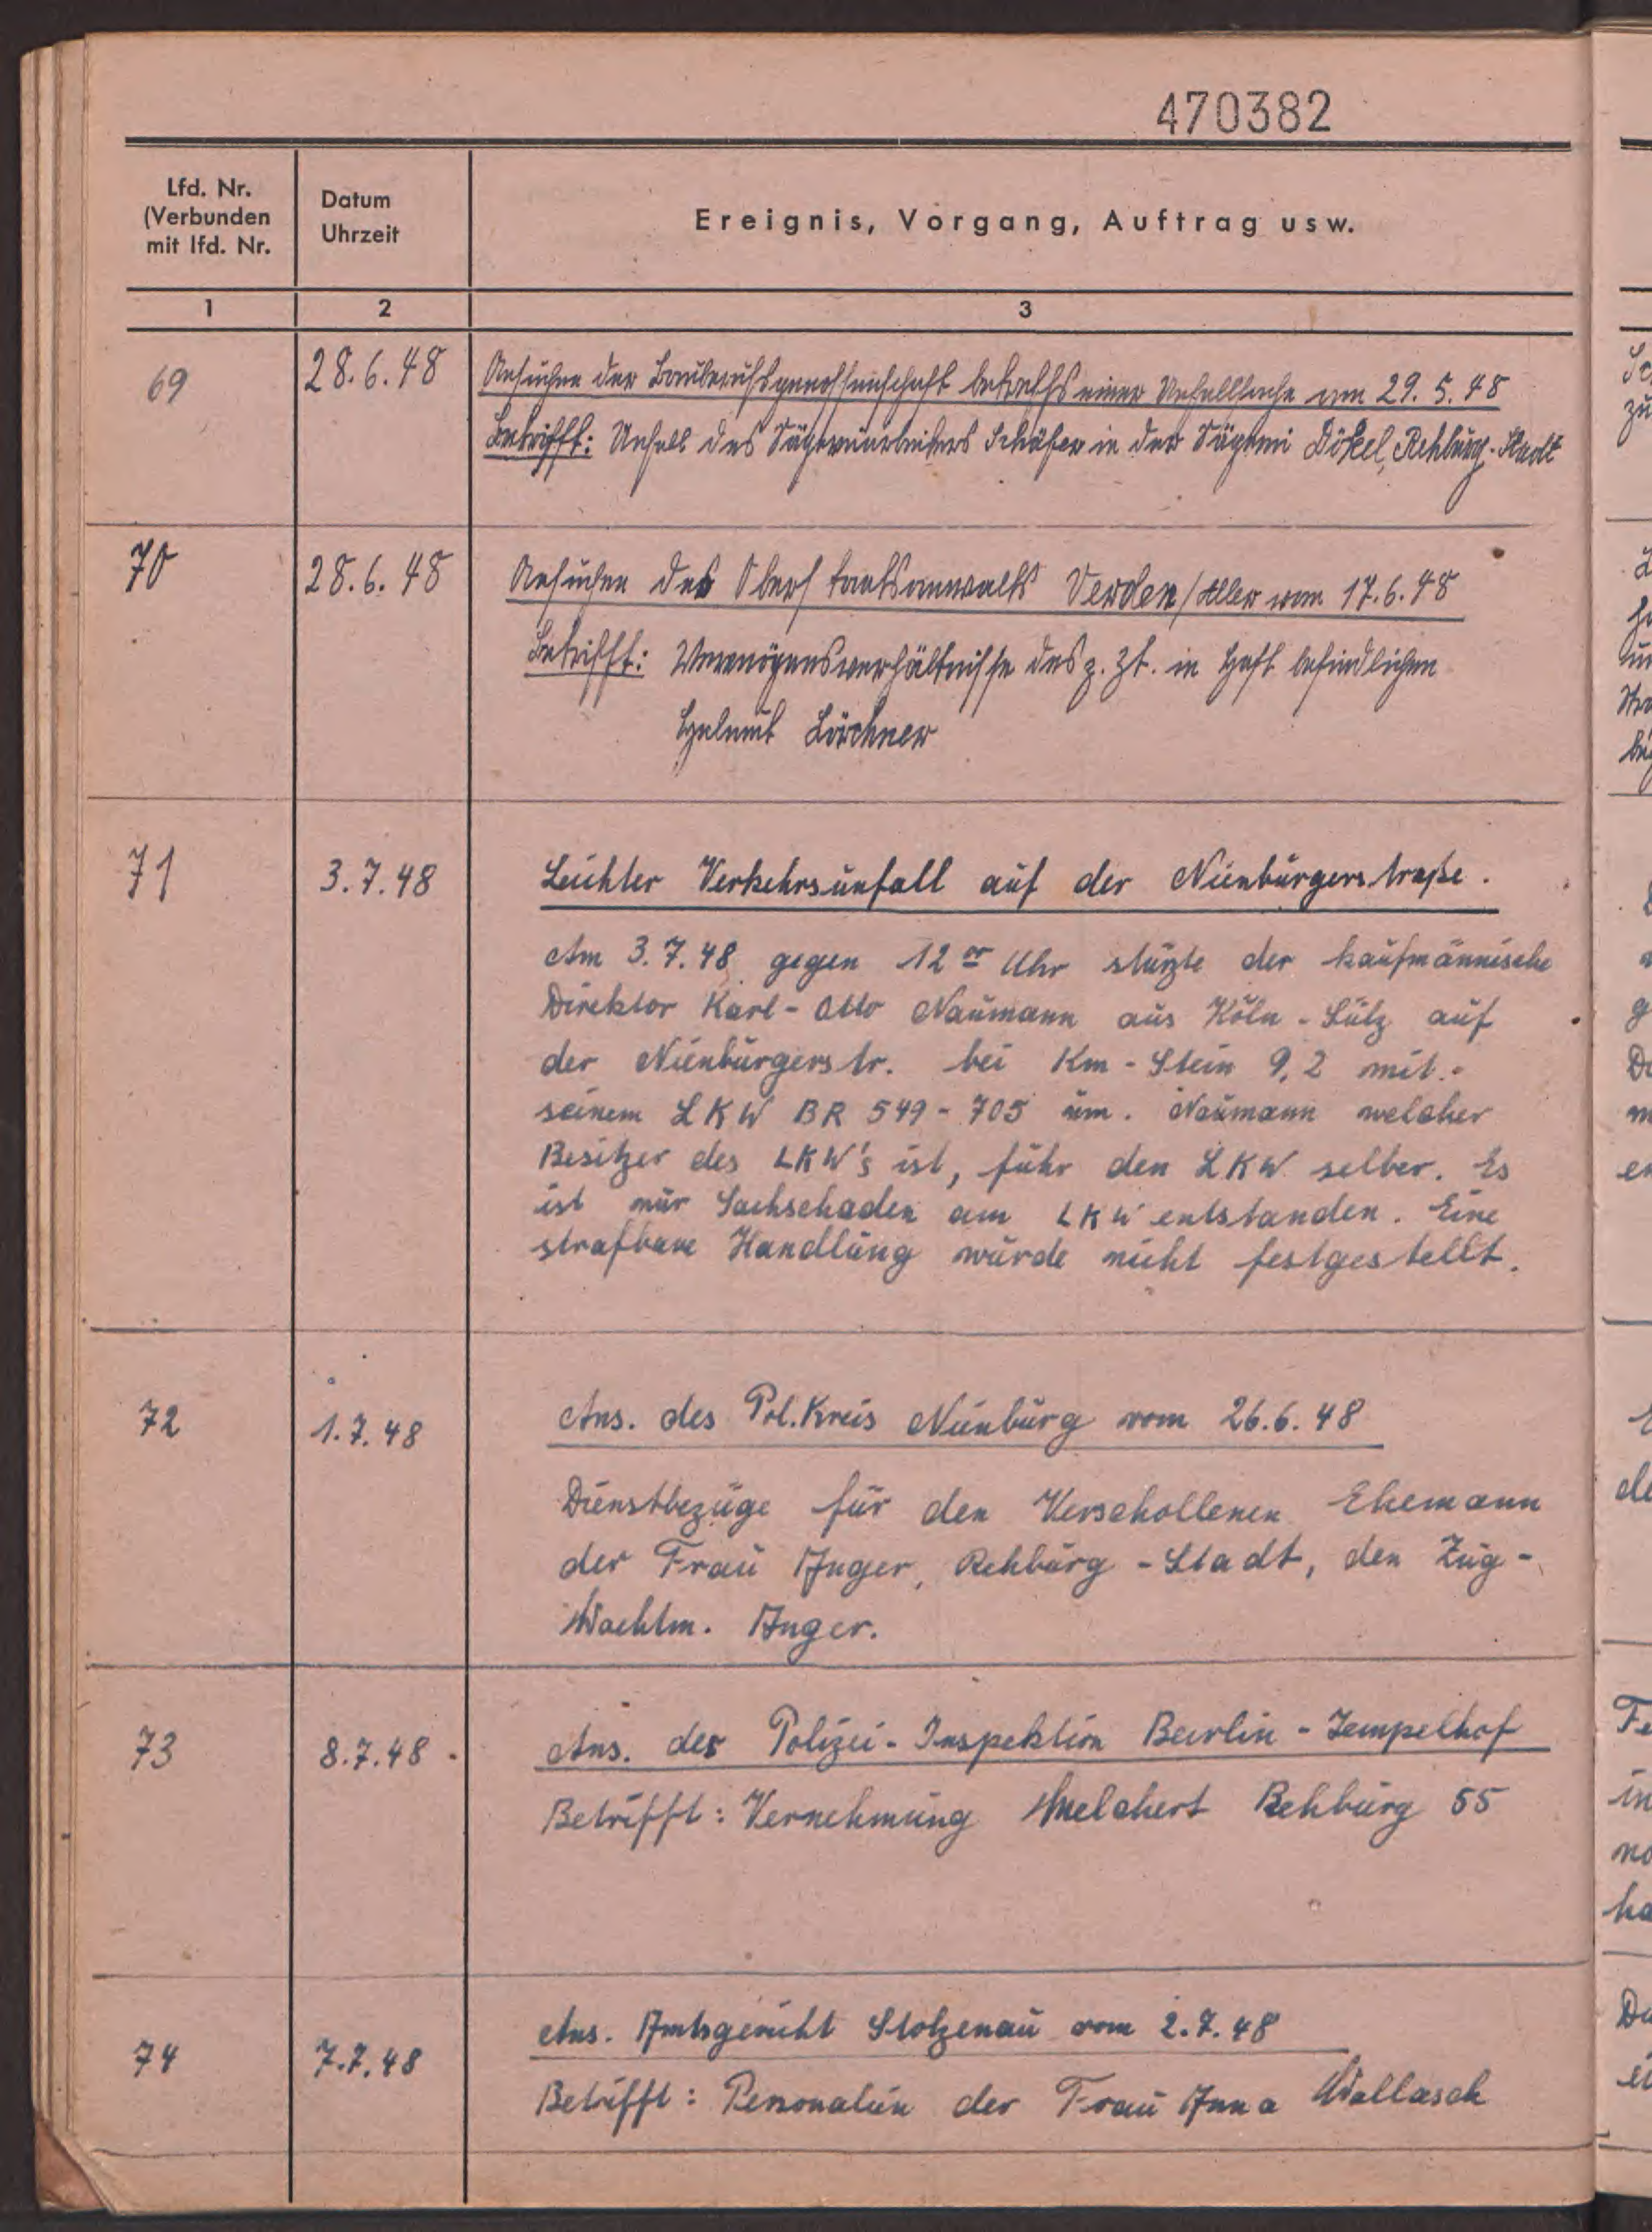 470382
Lfd. Nr.
(Verbunden
mit lfd. Nr.
Datum
Uhrzeit
Ereignis, Vorgang, Auftrag usw.
1 2 3
69 28.6.48 Ansuchen der Bauberufsgenossenschaft betreffs einer Unfallsache vom 29.5.48
Betrifft: Unfall des Sägereiarbeiters Schäfer in der Sägerei Dökel, Rehburg-Stadt
70 28.6.48 Ansuchen des Oberstaatsanwalts Verden/Aller vom 17.6.48
Betrifft: Vermögensverhältnisse des z. Zt. in Haft befindlichen
Helmut Lörchner
71 3.7.48 Leichter Verkehrsunfall auf der Nienburgerstraße.
Am 3.7.48 gegen 12 00 Uhr stürzte der kaufmännische
Direktor Karl-Otto Naumann aus Köln-Sülz auf
der Nienburgerstr. bei Km-Stein 9,2 mit
seinem LKW BR 549-705 um. Naumann welcher
Besitzer des LKW's ist, fuhr den LKW selber. Es
ist nur Sachschaden am LKW entstanden. Eine
strafbare Handlung wurde nicht festgestellt.
72 1.7.48 Ans. des Pol.Kreis Nienburg vom 26.6.48
Dienstbezüge für den Verschollenen Ehemann
der Frau Anger, Rehburg-Stadt, den Zug-
Wachtm. Anger.
73 8.7.48 Ans. der Polizei-Inspektion Berlin-Tempelhof
Betrifft: Vernehmung Melchert Rehburg 55
74 7.7.48 Ans. Amtsgericht Stolzenau vom 2.7.48
Betrifft: Personalien der Frau Anna Wallasch